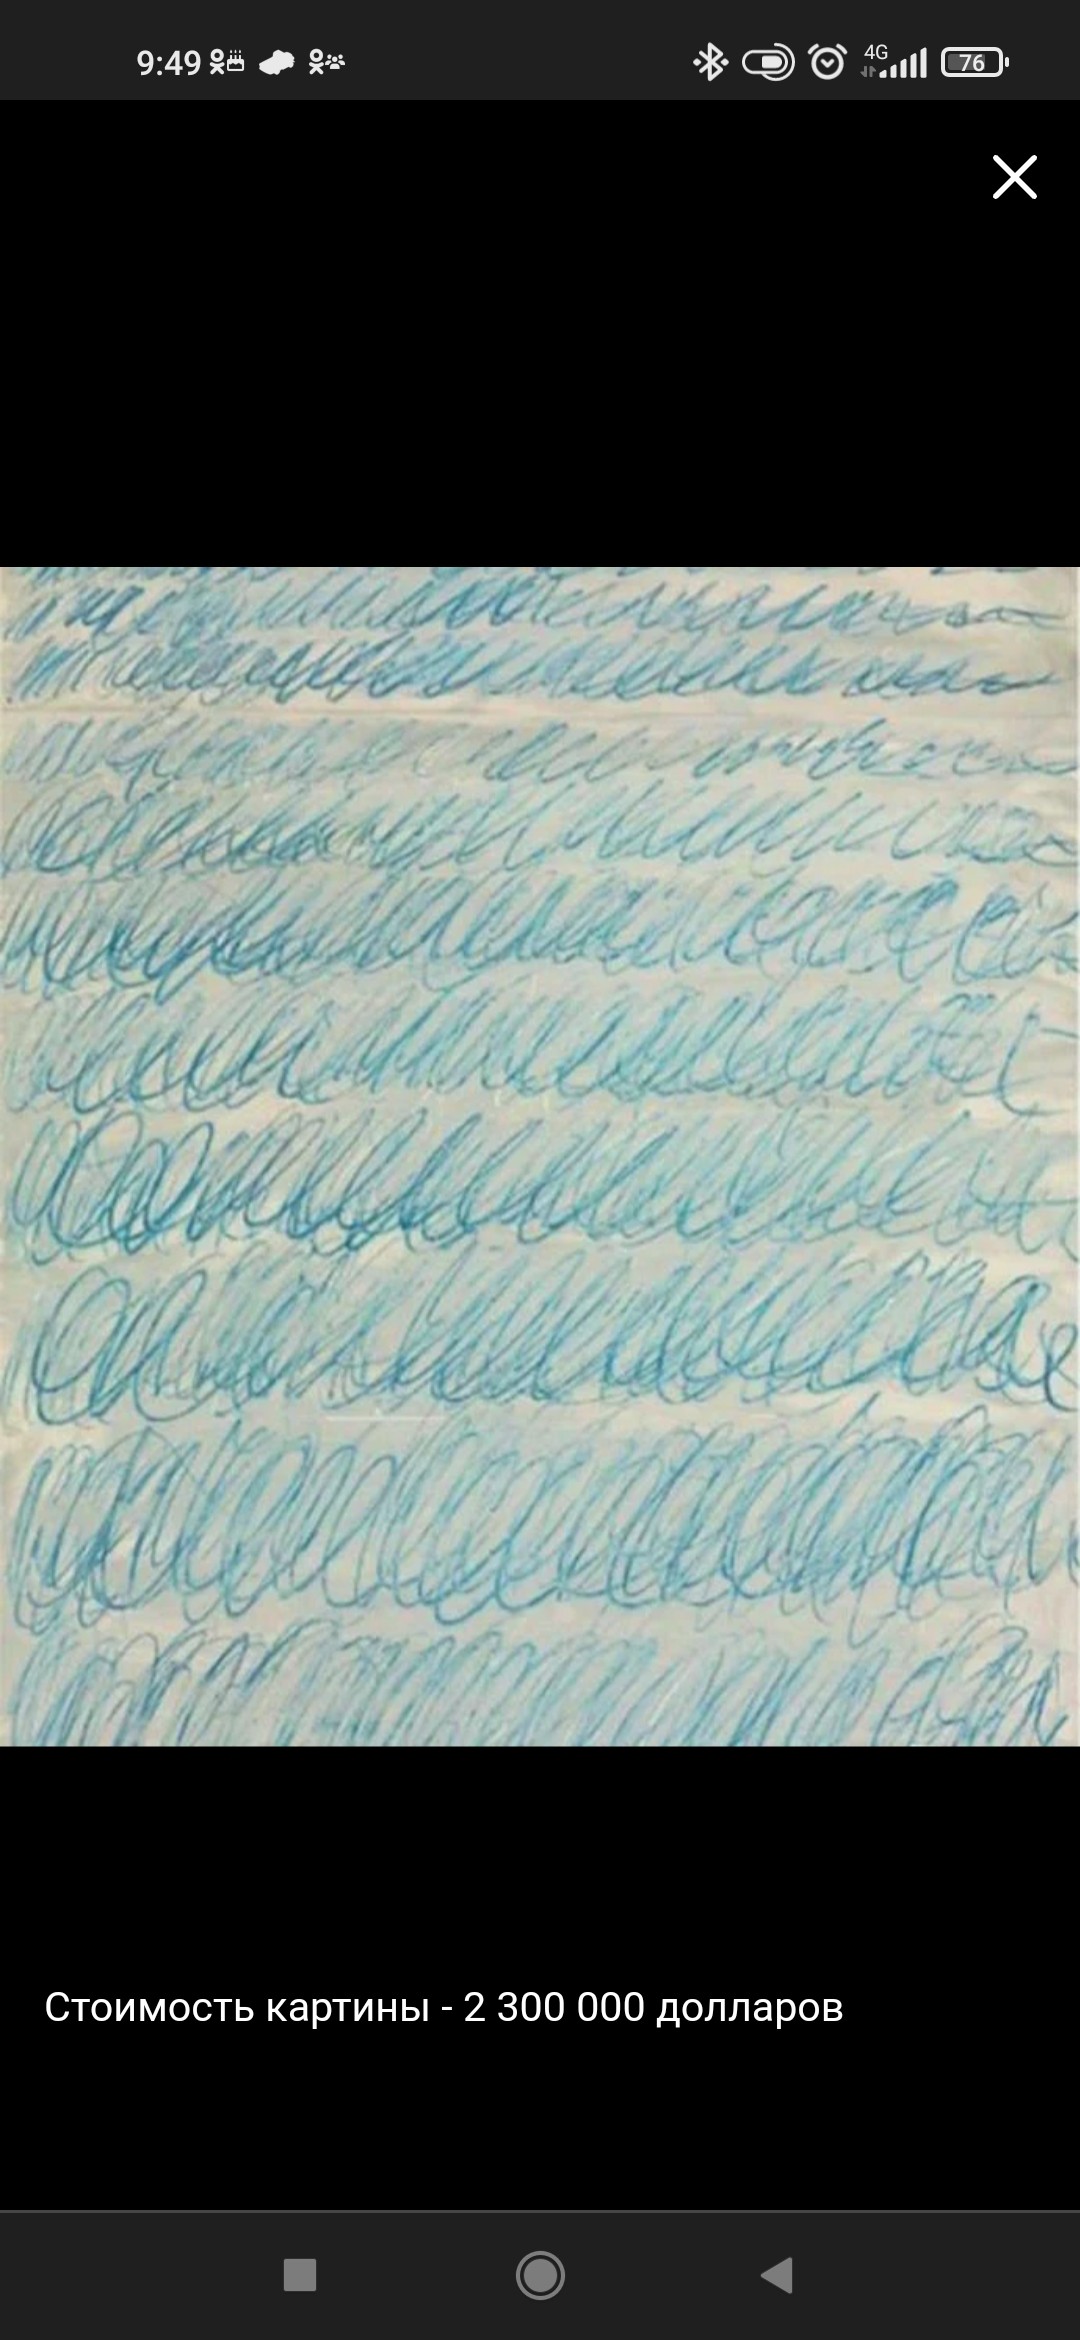 9:49
4G
76
Стоимость картины - 2 300 000 долларов